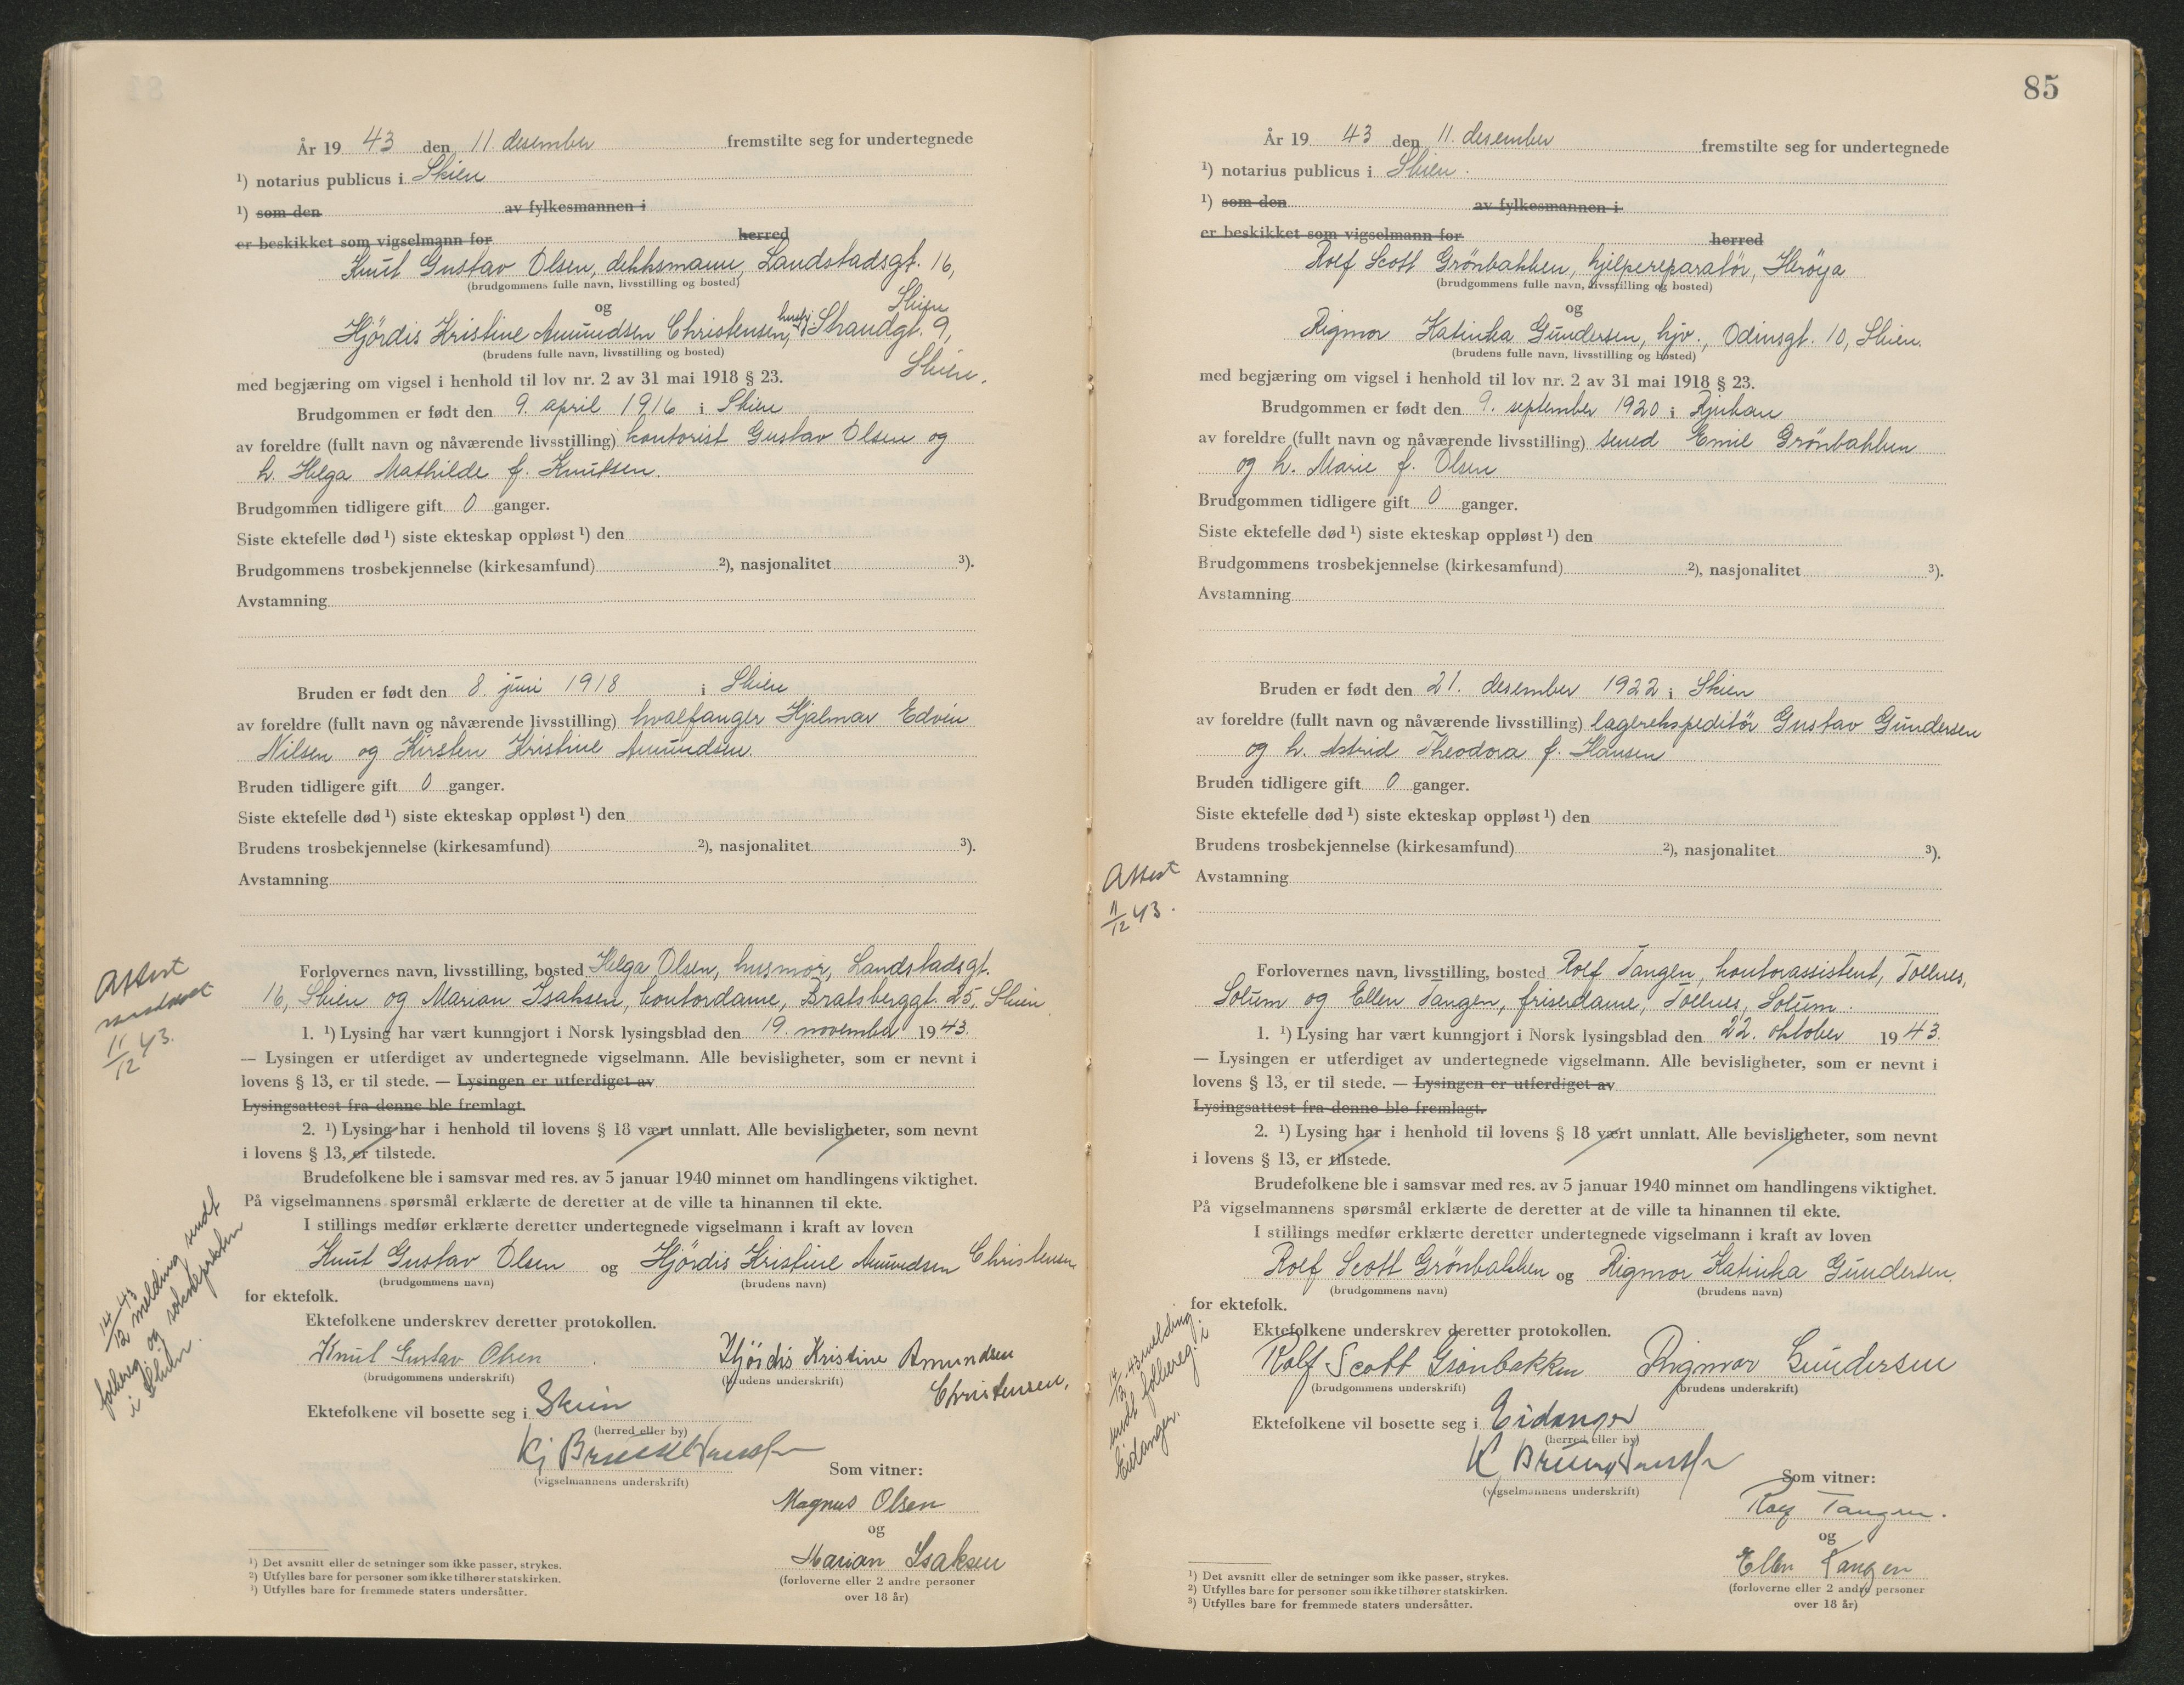 År 19 43 den 11 desember fremstilte seg for undertegnede
¹) notarius publicus i Skien
¹) som den av fylkesmannen i
er beskikket som vigselmann for herred
Knut Gustav Olsen, dekksmann, Landstadsgt. 16,
(brudgommens fulle navn, livsstilling og bosted)
Skien
og
Hjördis Kristine Amundsen Christensen, Strandgt. 9,
(brudens fulle navn, livsstilling og bosted)
Skien.
med begjæring om vigsel i henhold til lov nr. 2 av 31 mai 1918 § 23.
Brudgommen er født den 9. april 1916 i Skien
av foreldre (fullt navn og nåværende livsstilling) kontorist Gustav Olsen og
h. Helga Mathilde f. Knutsen.
Brudgommen tidligere gift 0 ganger.
Siste ektefelle død ¹) siste ekteskap oppløst ¹) den
Brudgommens trosbekjennelse (kirkesamfund) ²), nasjonalitet ³).
Avstamning
Bruden er født den 8. juni 1918 i Skien
av foreldre (fullt navn og nåværende livsstilling) hvalfanger Hjalmar Edvin
Nilsen og Kirsten Kristine Amundsen.
Bruden tidligere gift 0 ganger.
Siste ektefelle død ¹) siste ekteskap oppløst ¹) den
Brudens trosbekjennelse (kirkesamfund) ²), nasjonalitet ³).
Avstamning
Forlovernes navn, livsstilling, bosted Helga Olsen, husmor, Landstadsgt.
16, Skien og Marian Isaksen, kontordame, Bratsberggt. 25, Skien
1. ¹) Lysing har vært kunngjort i Norsk lysingsblad den 19. november 1943.
— Lysingen er utferdiget av undertegnede vigselmann. Alle bevisligheter, som er nevnt i
lovens § 13, er til stede. — Lysingen er utferdiget av
Lysingsattest fra denne ble fremlagt.
2. ¹) Lysing har i henhold til lovens § 18 vært unnlatt. Alle bevisligheter, som nevnt
i lovens § 13, er tilstede.
Brudefolkene ble i samsvar med res. av 5 januar 1940 minnet om handlingens viktighet.
På vigselmannens spørsmål erklærte de deretter at de ville ta hinannen til ekte.
I stillings medfør erklærte deretter undertegnede vigselmann i kraft av loven
Knut Gustav Olsen og Hjördis Kristine Amundsen Christensen
(brudgommens navn) (brudens navn)
for ektefolk.
Ektefolkene underskrev deretter protokollen.
Knut Gustav Olsen Hjördis Kristine Amundsen
(brudgommens underskrift) (brudens underskrift)
Christensen,
Ektefolkene vil bosette seg i Skien
(herred eller by)
(vigselmannens underskrift)
Som vitner:
Magnus Olsen
og
Marian Isaksen
(forloverne eller 2 andre personer
over 18 år)
¹) Det avsnitt eller de setninger som ikke passer, strykes.
²) Utfylles bare for personer som ikke tilhører statskirken.
³) Utfylles bare for fremmede staters undersåtter.
Attest
11/12 43.
14/12 43 melding sendt
folkereg og soknepresten
i Skien.
85
År 19 43 den 11. desember fremstilte seg for undertegnede
¹) notarius publicus i Skien.
¹) som den av fylkesmannen i
er beskikket som vigselmann for herred
Rolf Scott Grönbakken, hjelpereparatör, Heröya
(brudgommens fulle navn, livsstilling og bosted)
og
Rigmor Katinka Gundersen, hjv., Odinsgt. 10, Skien.
(brudens fulle navn, livsstilling og bosted)
med begjæring om vigsel i henhold til lov nr. 2 av 31 mai 1918 § 23.
Brudgommen er født den 9. september 1920 i Rjukan
av foreldre (fullt navn og nåværende livsstilling) smed Emil Grönbakken
og h. Marie f. Olsen
Brudgommen tidligere gift 0 ganger.
Siste ektefelle død ¹) siste ekteskap oppløst ¹) den
Brudgommens trosbekjennelse (kirkesamfund) ²), nasjonalitet ³).
Avstamning
Bruden er født den 21. desember 1922 i Skien
av foreldre (fullt navn og nåværende livsstilling) lagerekspeditör Gustav Gundersen
og h. Astrid Theodora f. Hansen
Bruden tidligere gift 0 ganger.
Siste ektefelle død ¹) siste ekteskap oppløst ¹) den
Brudens trosbekjennelse (kirkesamfund) ²), nasjonalitet ³).
Avstamning
Forlovernes navn, livsstilling, bosted Rolf Tangen, kontorassistent, Tollnes,
Solum og Ellen Tangen, friserdame, Tollnes, Solum.
1. ¹) Lysing har vært kunngjort i Norsk lysingsblad den 22. oktober 1943.
— Lysingen er utferdiget av undertegnede vigselmann. Alle bevisligheter, som er nevnt i
lovens § 13, er til stede. — Lysingen er utferdiget av
Lysingsattest fra denne ble fremlagt.
2. ¹) Lysing har i henhold til lovens § 18 vært unnlatt. Alle bevisligheter, som nevnt
i lovens § 13, er tilstede.
Brudefolkene ble i samsvar med res. av 5 januar 1940 minnet om handlingens viktighet.
På vigselmannens spørsmål erklærte de deretter at de ville ta hinannen til ekte.
I stillings medfør erklærte deretter undertegnede vigselmann i kraft av loven
Rolf Scott Grönbakken og Rigmor Katinka Gundersen
(brudgommens navn) (brudens navn)
for ektefolk.
Ektefolkene underskrev deretter protokollen.
Rolf Scott Grönbakken Rigmor Gundersen
(brudgommens underskrift) (brudens underskrift)
Ektefolkene vil bosette seg i Eidanger
(herred eller by)
(vigselmannens underskrift)
Som vitner:
Rolf Tangen.
og
Ellen Tangen
(forloverne eller 2 andre personer
over 18 år)
¹) Det avsnitt eller de setninger som ikke passer, strykes.
²) Utfylles bare for personer som ikke tilhører statskirken.
³) Utfylles bare for fremmede staters undersåtter.
Attest
11/12 43.
14/12 43 melding
sendt folkereg. i
Eidanger.